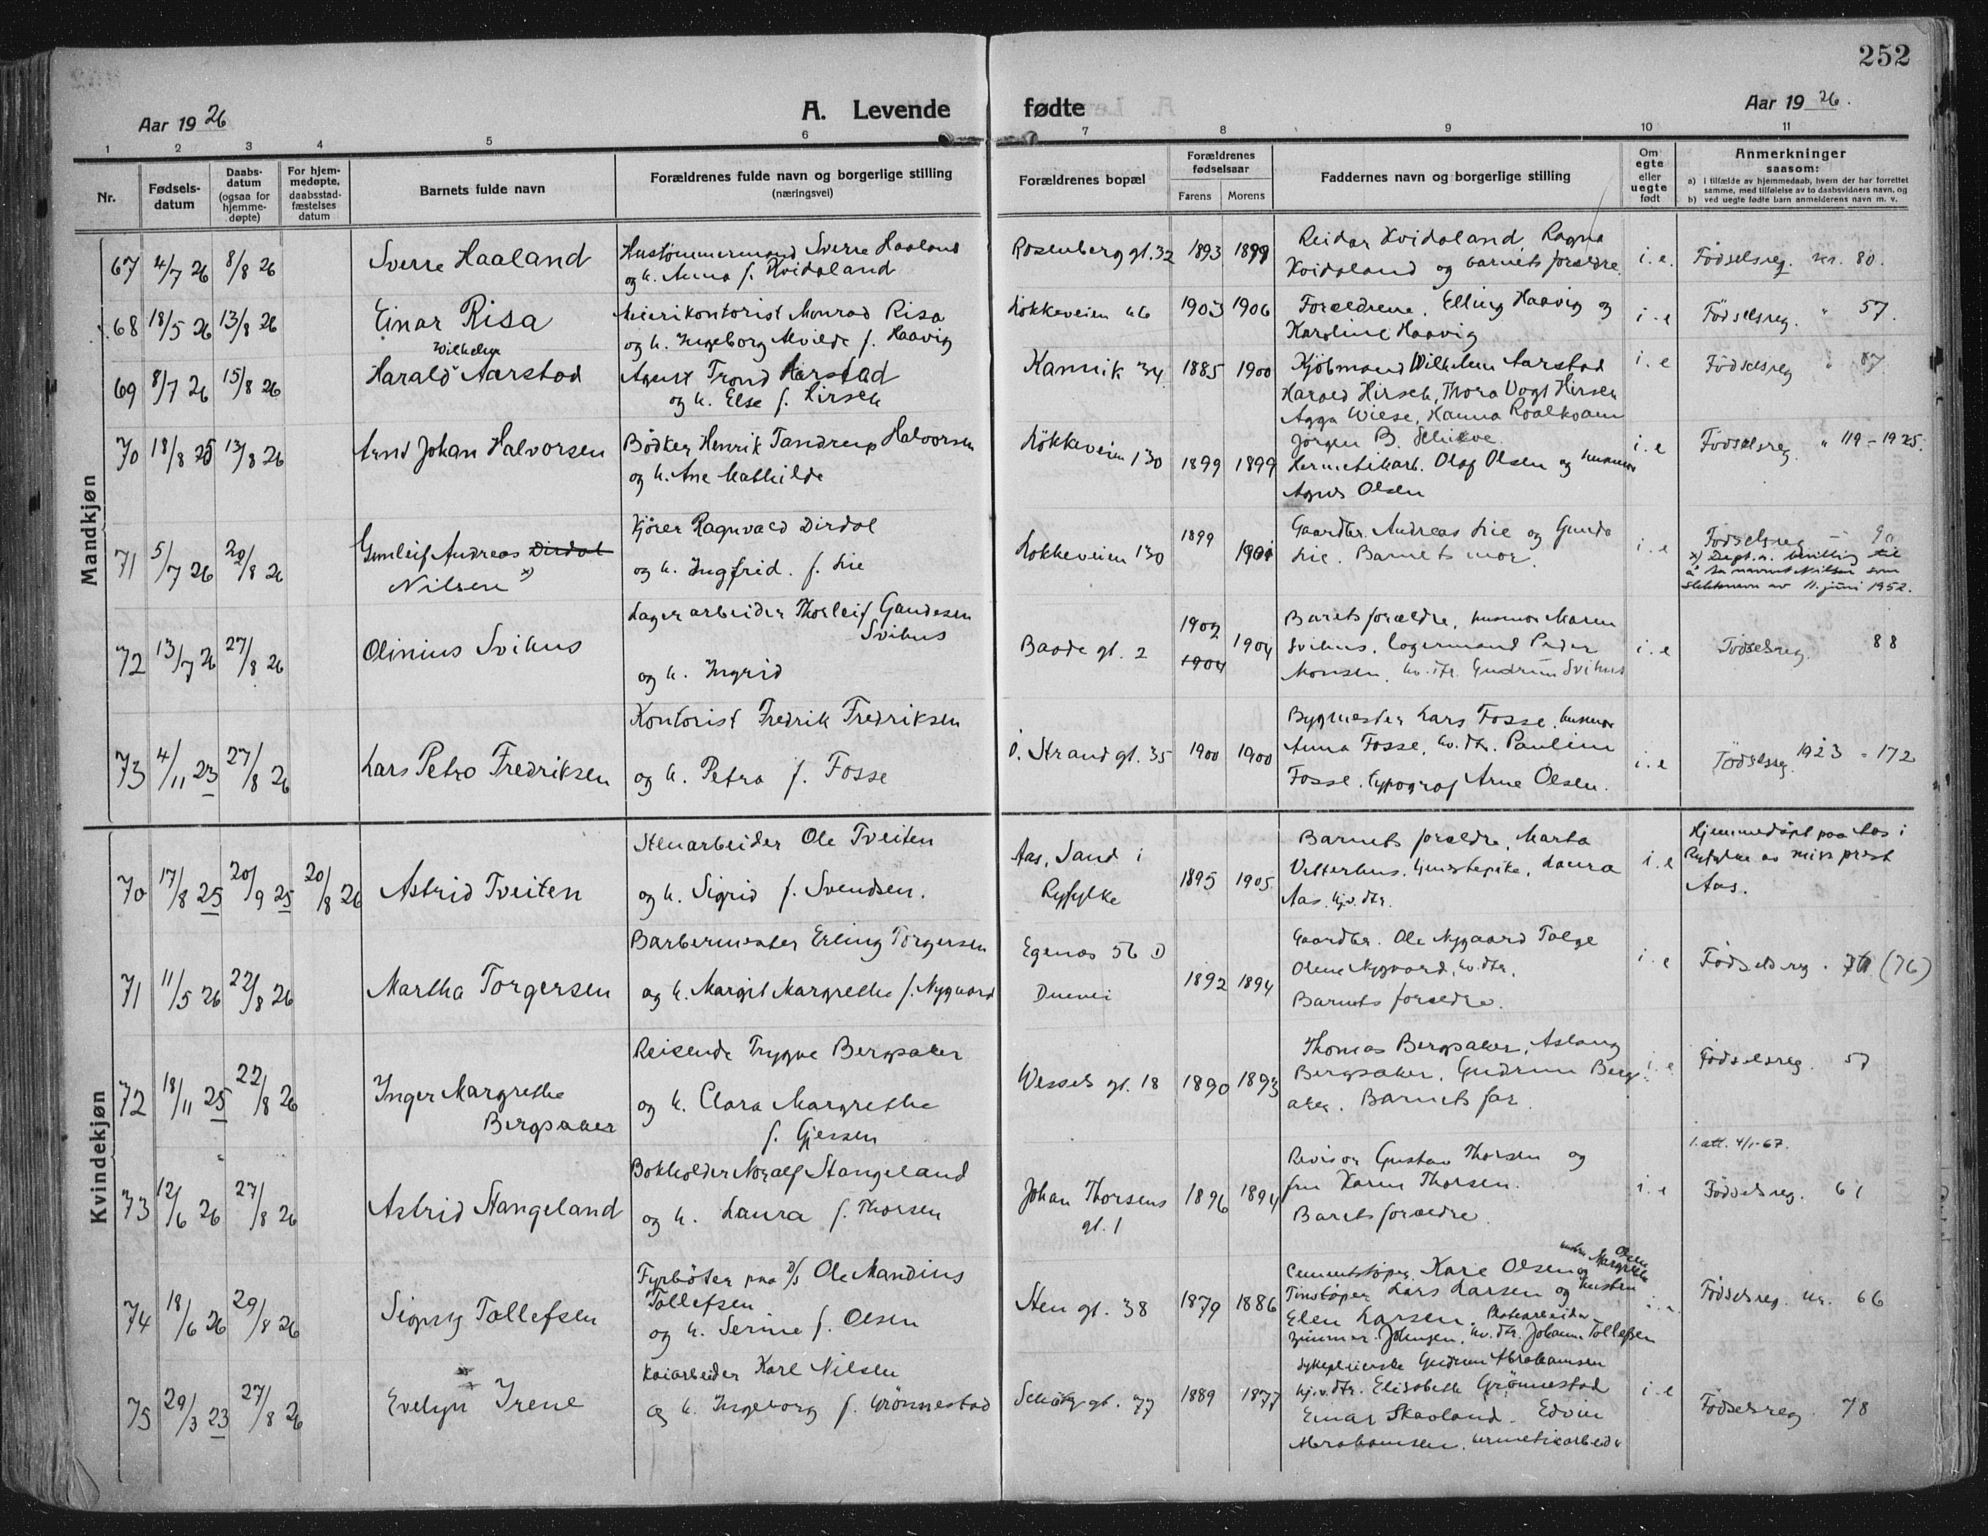 252
Aar 1926
A. Levende fødte
Aar 1926.
1 2 3 4 5 6 7 8 9 10 11
Nr.
Fødsels-
datum
Daabs-
datum
(ogsaa for
hjemme-
døpte)
For hjem-
medøpte,
daabsstad-
fæstelses
datum
Barnets fulde navn
Forældrenes fulde navn og borgerlige stilling
(næringsvei)
Forældrenes bopæl
Forældrenes
fødselsaar
Farens Morens
Faddernes navn og borgerlige stilling
Om
egte
eller
uegte
født
Anmerkninger
saasom:
a) I tilfælde av hjemmedaab, hvem der har forrettet
samme, med tilføielse av to daabsvidners navn, og
b) ved uegte fødte barn anmelderens navn m. v.
Mandkjøn
67 4/7 26 8/8 26
Sverre Haaland
Hustømmermand Sverre Haaland
og h. Anna f. Kvidaland
Rosenberg gt. 32
1893 1899
Reidar Kvidaland, Ragna
Kvidaland og barnets forældre
i. e.
Fødselsreg. nr. 80.
68 18/5 26 13/8 26
Einar Risa
Meierikontorist Monrad Risa
og h. Ingeborg Alvilde f. Haavig
Løkkeveien 66
1903 1906
Forældrene, Elling Haavig og
Karoline Haavig
i. e
Fødselsreg. " 57.
69 8/7 26 15/8 26
Wilhelm
Harald Aarstad
Agent Trond Aarstad
og h. Else f. Hirsch
Kannik 34
1885 1900
Kjøbmand Wilhelm Aarstad
Harald Hirsch, Thora Vogt Hirsch
Agga Wiese, Hanna Roalkvam
Jørgen B. Schieve.
i. e
Fødselsreg " 87.
70 18/8 25 13/8 26
Arnt Johan Halvorsen
Bødker Henrik Tandrup Halvorsen
og h. Ane Mathilde
Løkkeveien 130
1899 1899
Hermetikarb. Olaf Olsen og hustru
Agnes Olsen
i. e
Fødselsreg. " 119 - 1925.
71 5/7 26 20/8 26
Gunleif Andreas Dirdal
Nilsen x)
Kjører Ragnvald Dirdal
og h. Ingfrid. f. Lie
Løkkeveien 130
1899 1901
Gaardbr. Andreas Lie og Gunda
Lie. Barnets mor.
i. e
Fødselsreg - 90
x) Dept.s bevilling til
å ta navnet Nilsen som
slektsnavn av 11. juni 1952.
72 13/7 26 27/8 26
Olinius Svihus
Lagerarbeider Thorleif Gaudesen
Svihus
og h. Ingrid
Baade gt. 2
1902
1904
1904
Barnets forældre, husmor Maren
Svihus, Lagermand Peder
Monsen, hv. dtr. Gudrun Svihus
i. e
Fødselsreg. 88
73 4/11 23 27/8 26
Lars Petro Fredriksen
Kontorist Fredrik Fredriksen
og h. Petra f. Fosse
Ø. Strand gt. 35
1900 1900
Bygmester Lars Fosse, husmor
Anna Fosse, hv. dtr. Pauline
Fosse, typograf Arne Olsen.
i. e
Fødselsreg. 1923 - 172
Kvindekjøn
70 17/8 25 20/9 25 20/8 26
Astrid Tveiten
Stenarbeider Ole Tveiten
og h. Sigrid f. Svendsen.
Aas, Sand i
Ryfylke
1895 1905
Barnets forældre, Marta
Vetterhus, tjenestepike, Laura
Aas. hjv. dtr.
i. e
Hjemmedøpt paa Aas i
Ryfylke av miss. prest
Aas.
71 11/5 26 22/8 26
Martha Torgersen
Barbermester Erling Torgersen
og h. Margit Margrethe f. Nygaard
Egenæs 56 D
Duevei
1892 1894
Gaardbr. Ole Nygaard Talge
Olene Nygaard, hv. dtr.
Barnets forældre.
i. e
Fødselsreg. (76)
72 18/11 25 22/8 26
Inger Margrethe
Bergsaker
Reisende Trygve Bergsaker
og h. Clara Margrethe
f. Gjessen
Wessels gt. 18
1890 1893
Thomas Bergsaker, Aslaug
Bergsaker, Gudrun Bergs-
aker, Barnets far.
i. e
Fødselsreg. 57
73 12/6 26 27/8 26
Astrid Stangeland
Bokholder Noralf Stangeland
og h. Laura f. Thorsen
Johan Thorsens
gt. 1
1896 1894
Revisor Gustav Thorsen og
fru Karen Thorsen.
Barnets forældre.
i. e
1. att. 4/1-67.
Fødselsreg. 61
74 18/6 26 29/8 26
Signy Tollefsen
Fyrbøter paa D/S Ole Mandius
Tollefsen
og h. Serine f. Olsen
Sten gt. 38
1879 1886
Cementstøper Kare Olsen og hustru Margrethe Olsen
Tinstøper Lars Larsen og hustru
Elen Larsen,
Zimmer Johnsen, hv. dtr. Johanne Tollefsen
Fødselsreg. nr. 66
75 29/3 23 27/8 26
Evelyn Irene
Kaiarbeider Karl Nilsen
og h. Ingeborg f. Grønnestad
77
1889 1877
Sykepleierske Gudrun Abrahamsen
hjv. dtr. Elisabeth Grønnestad
Einar Skavland. Edvin
Abrahamsen, hermetikarbeid.
i. e
Fødselsreg. 78